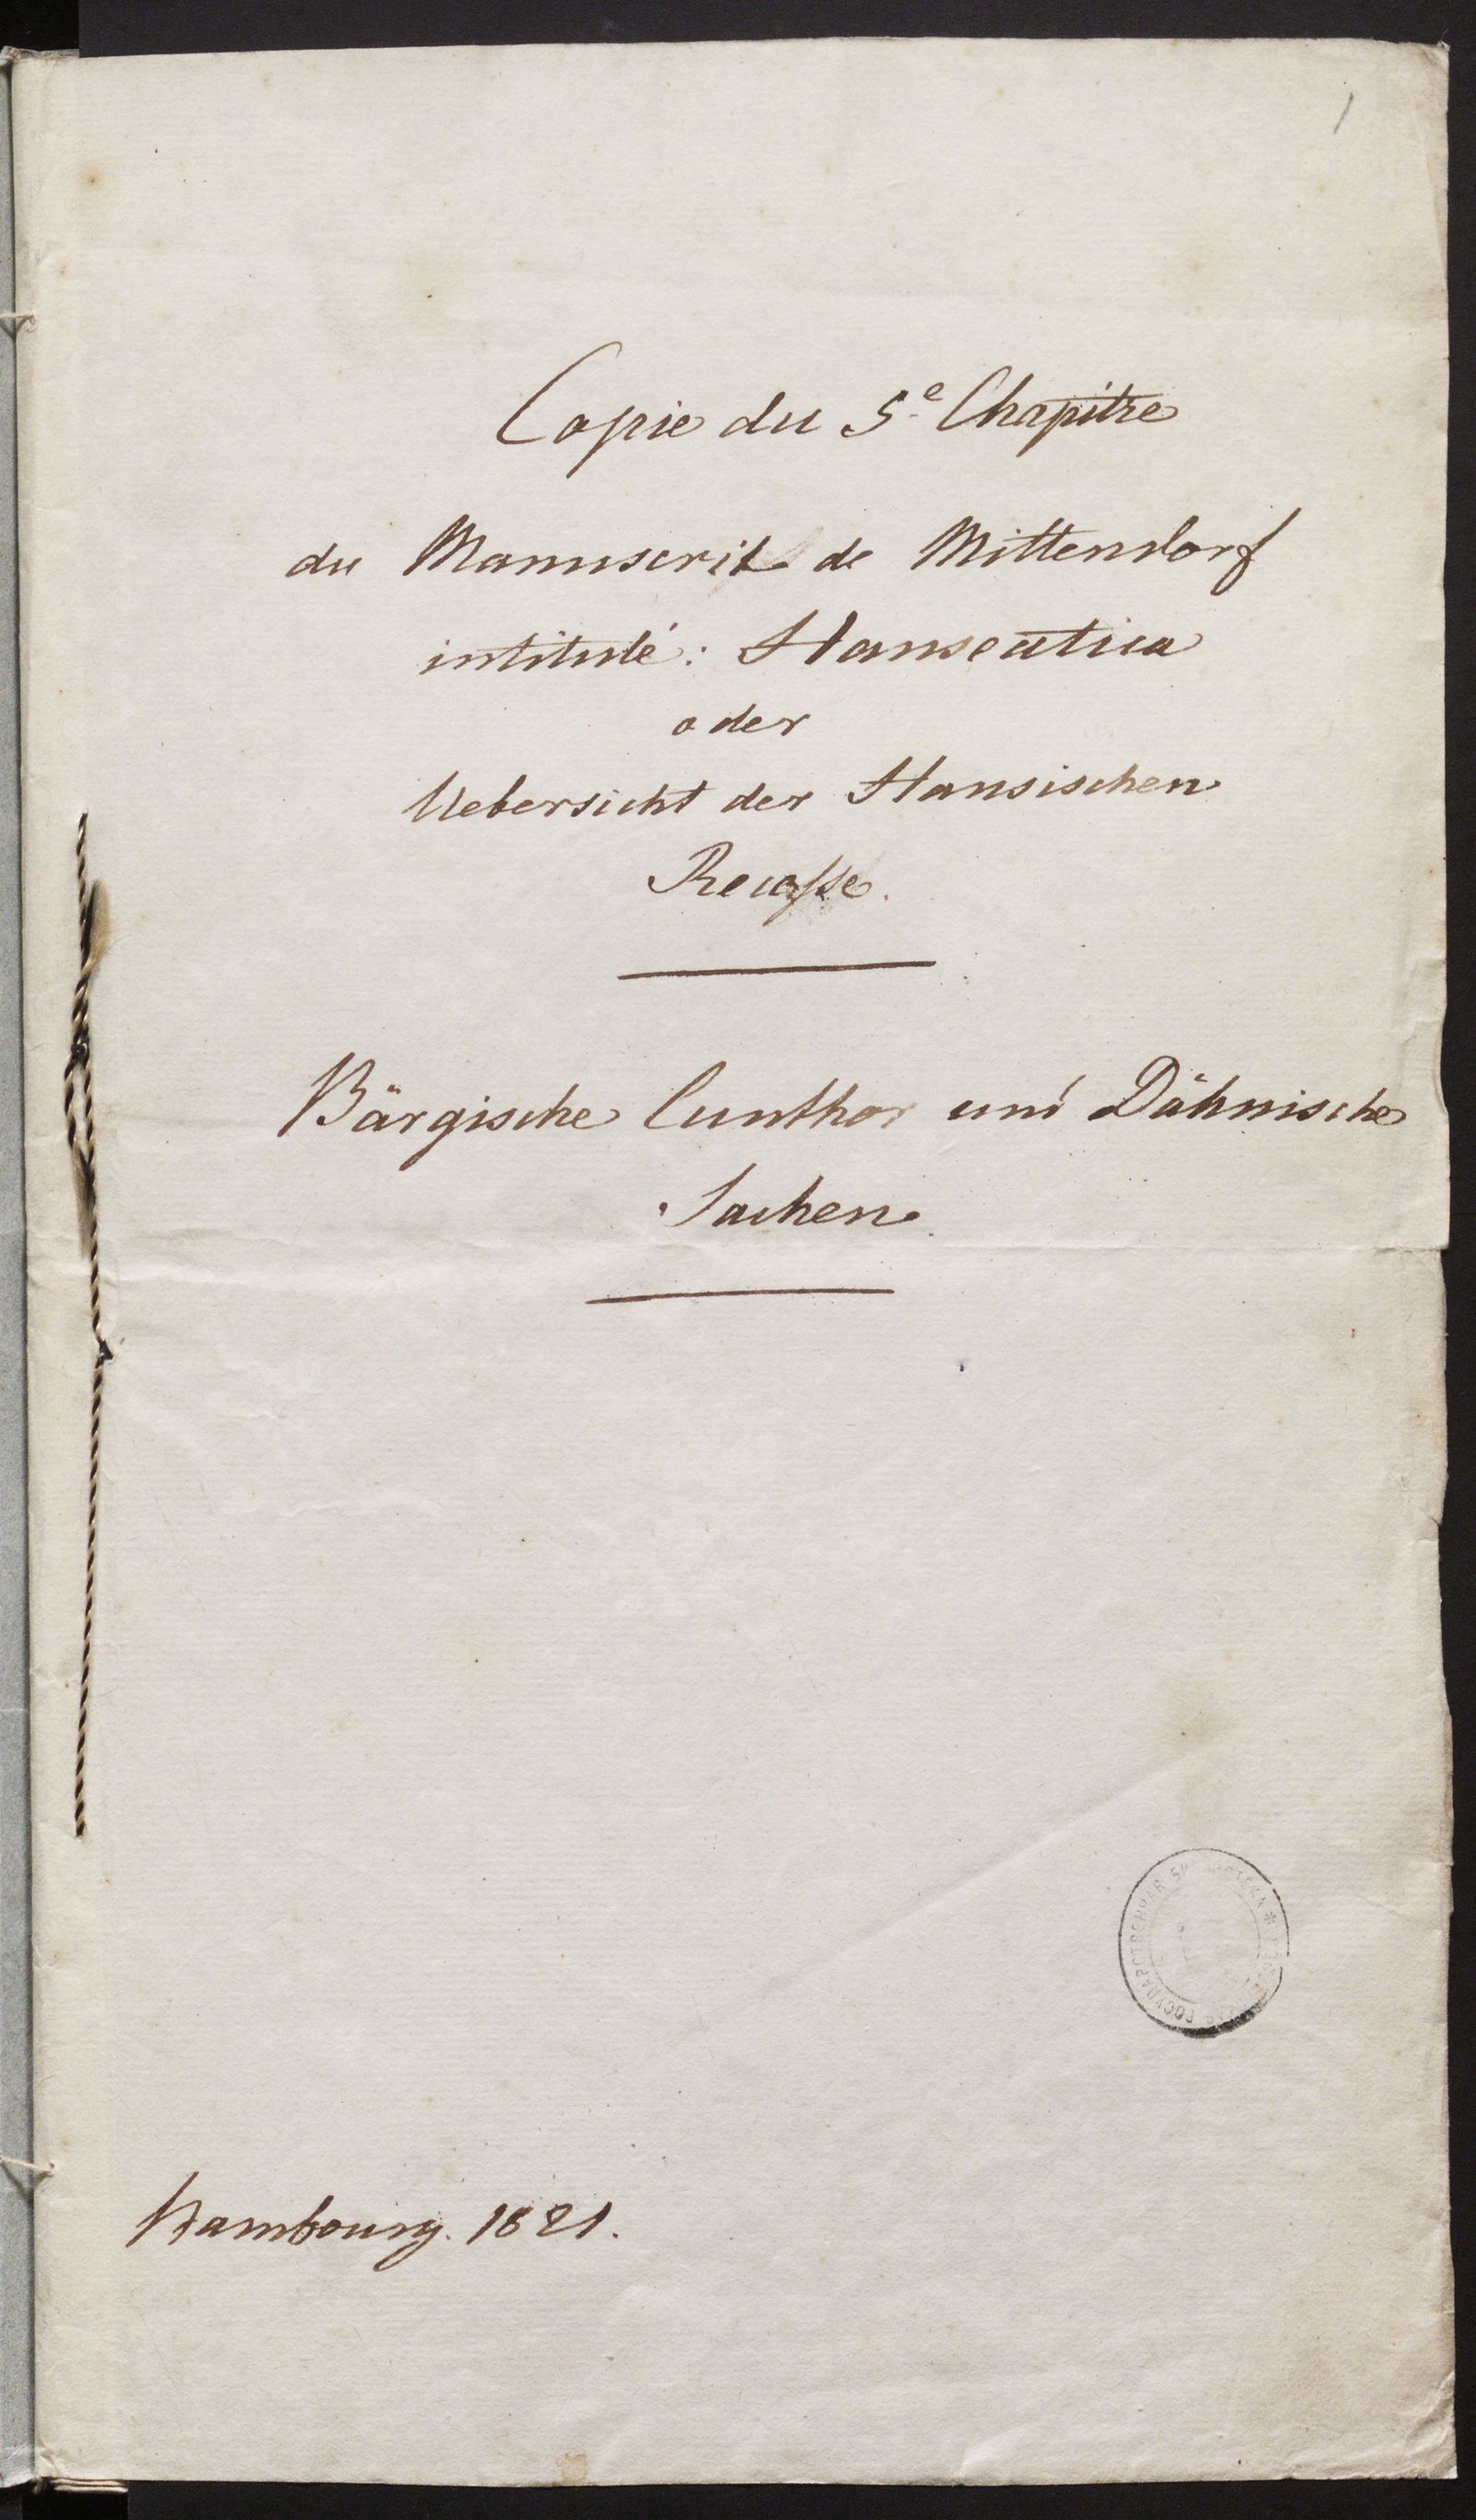 1
Copie du 5e Chapitre
du Manuscrit de Mittendorf
intitulé: Hanseatica
oder
Uebersicht der Hansischen
Recesse.
Bärgische Cunthor und Dähnische
Sachen.
Hambourg. 1821.